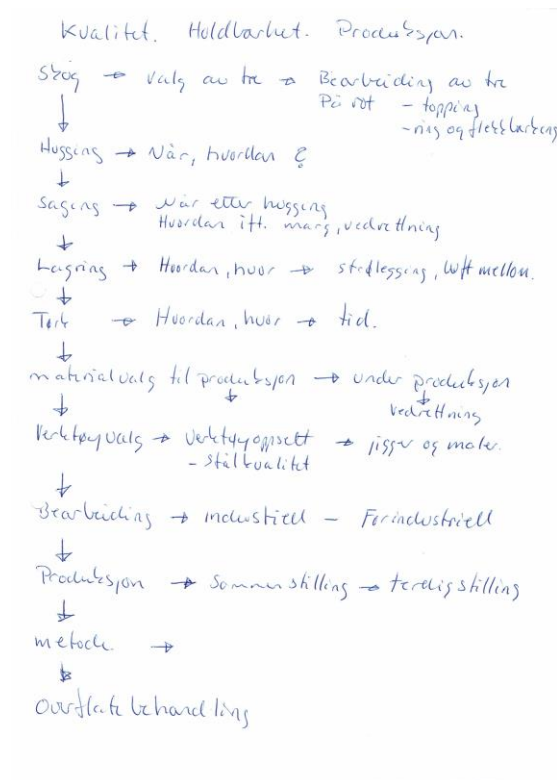 Kvalitet. Holdbarhet. Produksjon.
Skog → Valg av tre → Bearbeiding av tre
På rot - topping
- ring og flekkbarking
Hugging → Når, hvordan ?
Saging → Når etter hugging
Hvordan ift. marg, vedrettning
Lagring → Hvordan, hvor → strølegging, luft mellom.
Tørk → Hvordan, hvor → tid.
materialvalg til produksjon → under produksjon
Vedrettning
Verktøyvalg → verktøyoppsett → jigger og maler.
- stålkvalitet
Bearbeiding → industriell - Førindustriell
Produksjon → Sammenstilling → ferdigstilling
metode. →
Overflatebehandling